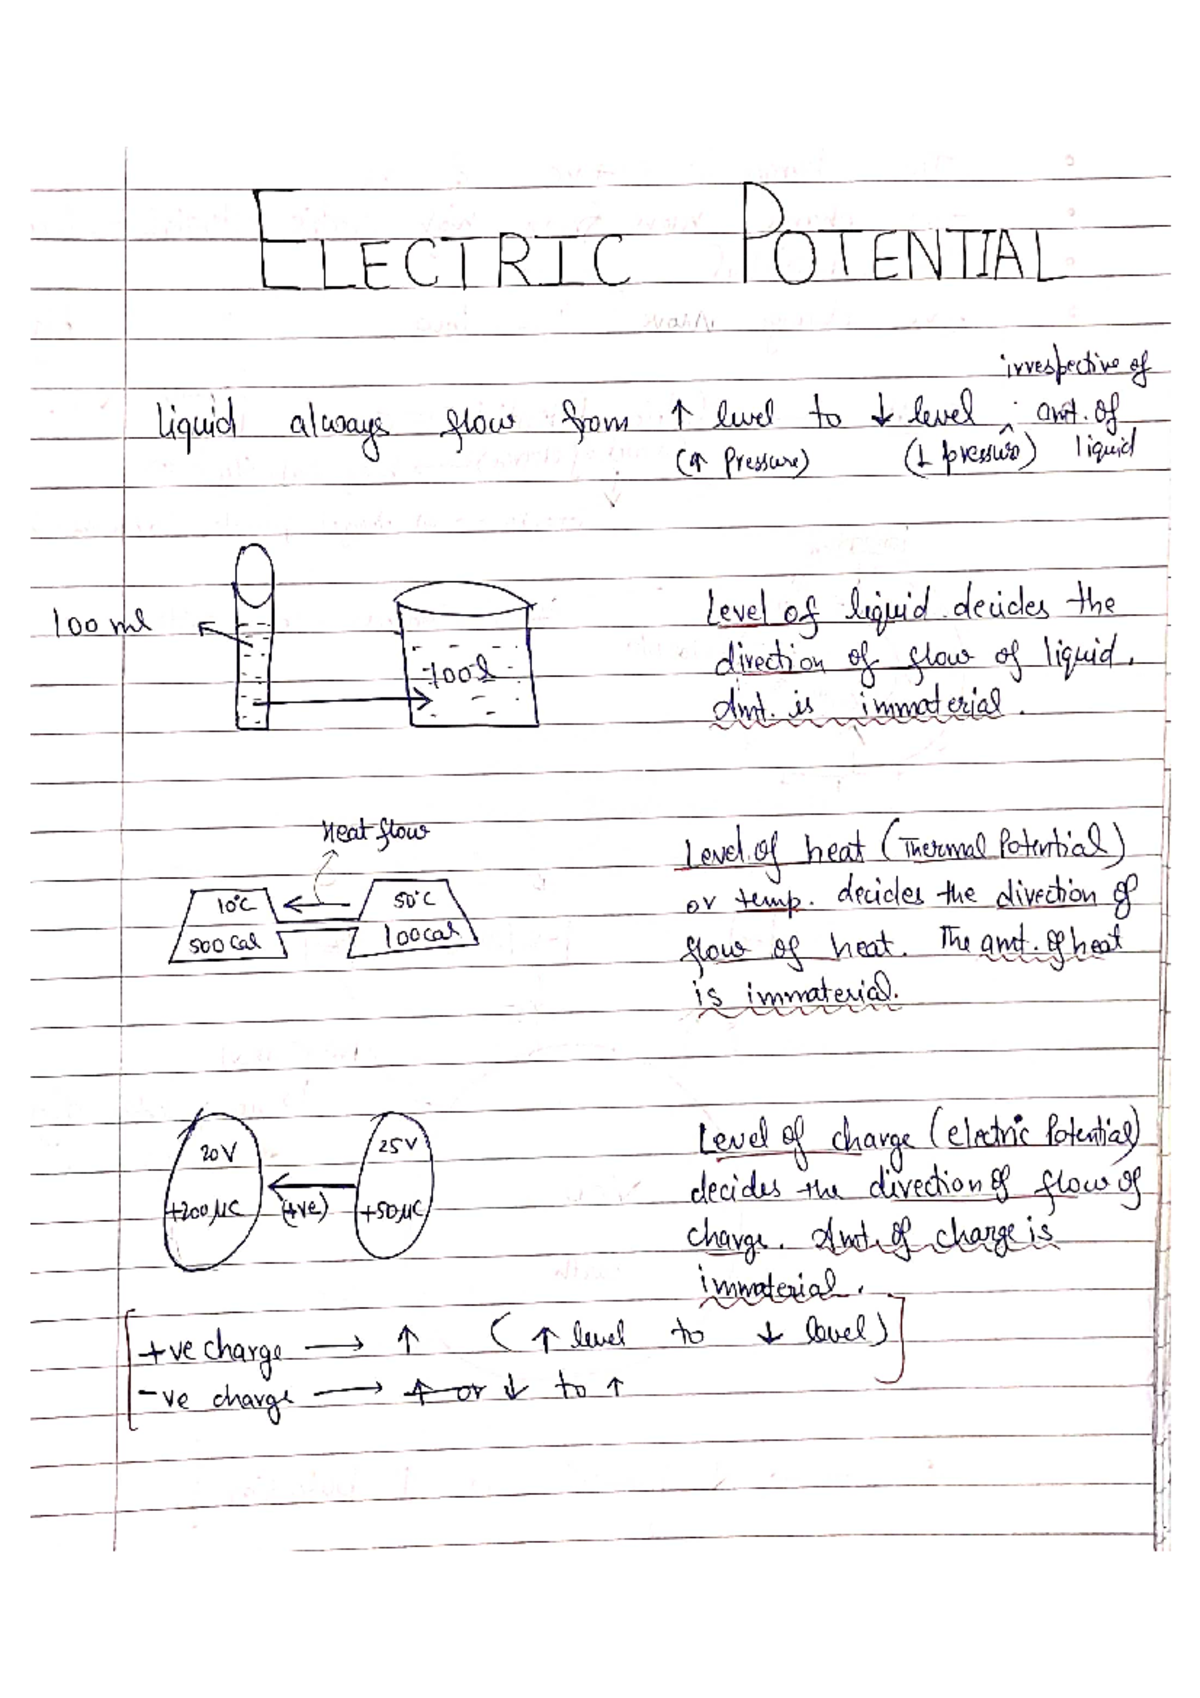 ELECTRIC POTENTIAL
irrespective of
liquid always flow from ↑ level to ↓ level ^ amt. of
(↑ Pressure) (↓ pressure) liquid
100 ml
100 l
Level of liquid decides the
direction of flow of liquid.
Amt. is immaterial.
Heat flow
10°C
50°C
500 Cal
100 cal
Level of heat (Thermal Potential)
or temp. decides the direction of
flow of heat. The amt. of heat
is immaterial.
20V
25V
+200 μC
(+ve)
+50 μC
Level of charge (electric Potential)
decides the direction of flow of
charge. Amt. of charge is
immaterial.
+ve charge → ↑ (↑ level to ↓ level)
-ve charge → ↑ or ↓ to ↑